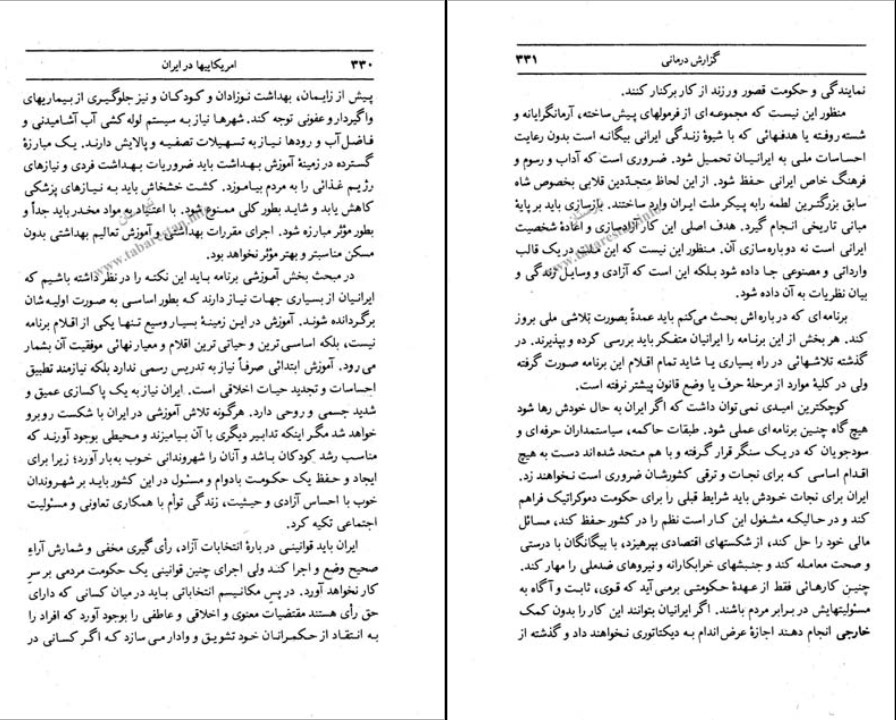 ۳۳۰ امریکاییها در ایران
پیش از زایمان، بهداشت نوزادان و کودکان و نیز جلوگیری از بیماریهای
واگیردار و عفونی توجه کند. شهرها نیاز به سیستم لوله کشی آب آشامیدنی و
فاضل آب و رودها نیاز به تسهیلات تصفیه و پالایش دارند. یک مبارزهٔ
گسترده در زمینهٔ آموزش بهداشت باید ضروریات بهداشت فردی و نیازهای
رژیم غذائی را به مردم بیاموزد. کشت خشخاش باید به نیازهای پزشکی
کاهش یابد و شاید بطور کلی ممنوع شود. با اعتیاد به مواد مخدر باید جداً و
بطور مؤثر مبارزه شود. اجرای مقررات بهداشتی و آموزش تعالیم بهداشتی بدون
مسکن مناسبتر و بهتر مؤثر نخواهد بود.
در مبحث بخش آموزشی برنامه باید این نکته را در نظر داشته باشیم که
ایرانیان از بسیاری جهات نیاز دارند که بطور اساسی به صورت اولیه شان
برگردانده شوند. آموزش در این زمینهٔ بسیار وسیع تنها یکی از اقلام برنامه
نیست، بلکه اساسی ترین و حیاتی ترین اقلام و معیار نهائی موفقیت آن بشمار
می رود. آموزش ابتدائی صرفاً نیاز به تدریس رسمی ندارد بلکه نیازمند تطبیق
احساسات و تجدید حیات اخلاقی است. ایران نیاز به یک پاکسازی عمیق و
شدید جسمی و روحی دارد. هرگونه تلاش آموزشی در ایران با شکست روبرو
خواهد شد مگر اینکه تدابیر دیگری با آن بیامیزند و محیطی بوجود آورند که
مناسب رشد کودکان باشد و آنان را شهروندانی خوب به بار آورد؛ زیرا برای
ایجاد و حفظ یک حکومت بادوام و مسئول در این کشور باید بر شهروندان
خوب با احساس آزادی و حیثیت، زندگی توأم با همکاری تعاونی و مسئولیت
اجتماعی تکیه کرد.
ایران باید قوانینی در بارهٔ انتخابات آزاد، رأی گیری مخفی و شمارش آراءِ
صحیح وضع و اجرا کند ولی اجرای چنین قوانینی یک حکومت مردمی بر سرِ
کار نخواهد آورد. در پسِ مکانیسم انتخاباتی باید در میان کسانی که دارای
حق رأی هستند مقتضیات معنوی و اخلاقی و عاطفی را بوجود آورد که افراد را
به انتقاد از حکمرانان خود تشویق و وادار می سازد که اگر کسانی در
www.tabarestan.info
گزارش درمانی ۳۳۱
نمایندگی و حکومت قصور ورزند از کار برکنار کنند.
منظور این نیست که مجموعه ای از فرمولهای پیش ساخته، آرمانگرایانه و
شسته روفته یا هدفهائی که با شیوهٔ زندگی ایرانی بیگانه است بدون رعایت
احساسات ملی به ایرانیان تحمیل شود. ضروری است که آداب و رسوم و
فرهنگ خاص ایرانی حفظ شود. از این لحاظ متجدّدین قلابی بخصوص شاه
سابق بزرگترین لطمه را به پیکر ملت ایران وارد ساختند. بازسازی باید بر پایهٔ
مبانی تاریخی انجام گیرد. هدف اصلی این کار آزادسازی و اعادهٔ شخصیت
ایرانی است نه دوباره سازی آن. منظور این نیست که این ملت در یک قالب
وارداتی و مصنوعی جا داده شود بلکه این است که آزادی و وسایل زندگی و
بیان نظریات به آن داده شود.
برنامه ای که در باره اش بحث می کنم باید عمدةً بصورت تلاشی ملی بروز
کند. هر بخش از این برنامه را ایرانیان متفکر باید بررسی کرده و بپذیرند. در
گذشته تلاشهائی در راه بسیاری یا شاید تمام اقلام این برنامه صورت گرفته
ولی در کلیهٔ موارد از مرحلهٔ حرف یا وضع قانون پیشتر نرفته است.
کوچکترین امیدی نمی توان داشت که اگر ایران به حال خودش رها شود
هیچ گاه چنین برنامه ای عملی شود. طبقات حاکمه، سیاستمداران حرفه ای و
سودجویان که در یک سنگر قرار گرفته و با هم متحد شده اند دست به هیچ
اقدام اساسی که برای نجات و ترقی کشورشان ضروری است نخواهند زد.
ایران برای نجات خودش باید شرایط قبلی را برای حکومت دموکراتیک فراهم
کند و در حالیکه مشغول این کار است نظم را در کشور حفظ کند، مسائل
مالی خود را حل کند، از شکستهای اقتصادی بپرهیزد، با بیگانگان با درستی
و صحت معامله کند و جنبشهای خرابکارانه و نیروهای ضدملی را مهار کند.
چنین کارهائی فقط از عهدهٔ حکومتی برمی آید که قوی، ثابت و آگاه به
مسئولیتهایش در برابر مردم باشند. اگر ایرانیان بتوانند این کار را بدون کمک
خارجی انجام دهند اجازهٔ عرض اندام به دیکتاتوری نخواهند داد و گذشته از
www.tabarestan.info